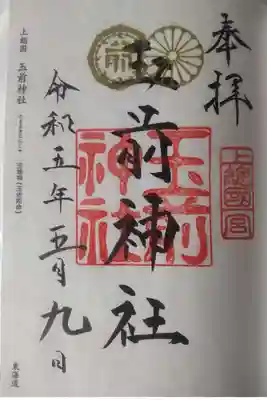 奉拝
上総国一宮
玉前神社
玉前神社
前
令和五年五月九日
上総国 玉前神社
東海道